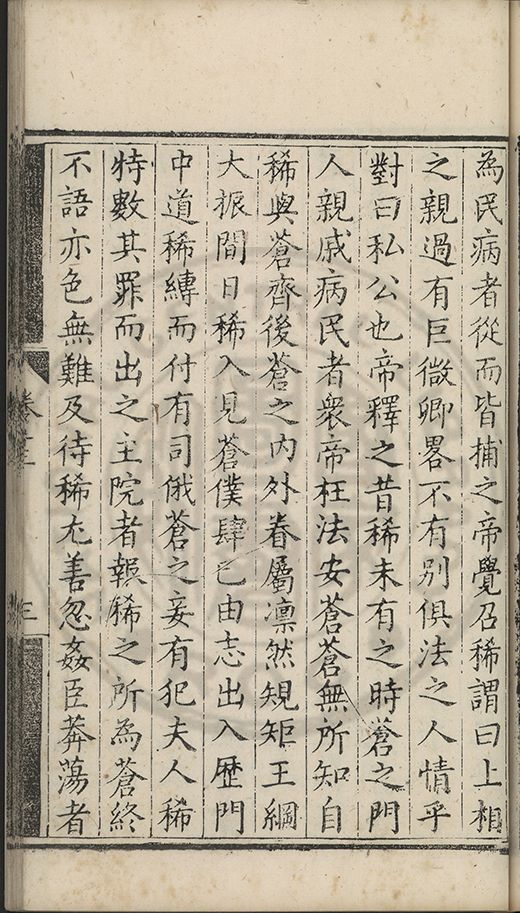 為民病者從而皆捕之帝覺召稀謂曰上相
之親過有巨微卿畧不有別俱法之人情乎
對曰私公也帝釋之昔稀未有之時蒼之門
人親戚病民者衆帝枉法安蒼蒼無所知自
稀與蒼齊後蒼之內外眷屬凛然䂓矩王綱
大振間日稀入見蒼僕肆己由志出入歴門
中道稀縛而付有司俄蒼之妾有犯夫人稀
特數其罪而出之主院者報稀之所為蒼終
不語亦色無難及待稀尤善忽姦臣莽蕩者
卷十三
三